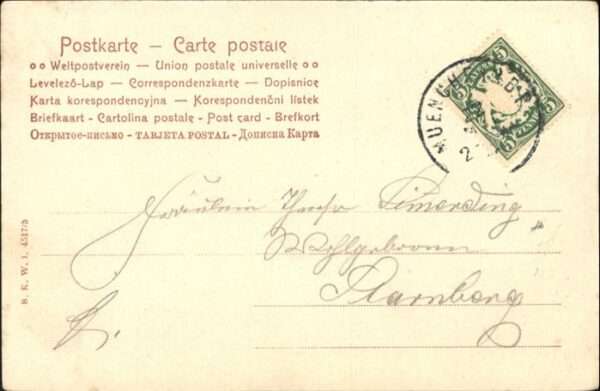 Postkarte – Carte postale
Weltpostverein – Union postale universelle
Levelező-Lap – Correspondenzkarte – Dopisnice
Karta korespondencyjna – Korespondenční lístek
Briefkaart - Cartolina postale - Post card - Brefkort
Открытое-письмо - TARJETA POSTAL - Дописна Карта
MUENCH
5 5
5 5
2
Fräulein Simerding
Wohlgeboren
Starnberg
B. K. W. I. 4517/3